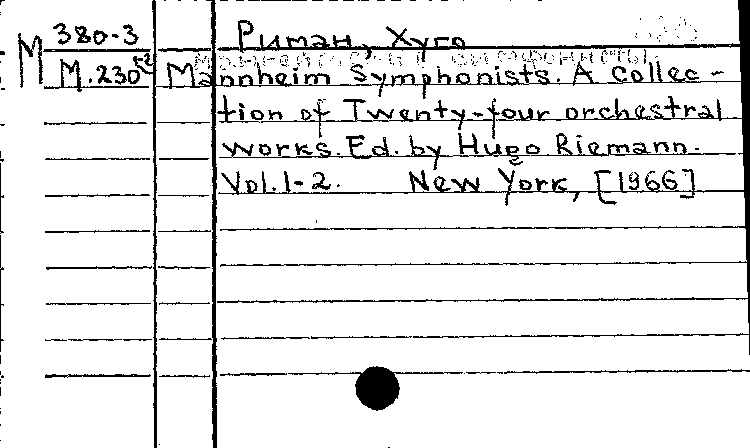 М 380-3 Риман, Хуго
М.230 Mannheim Symphonists. A Collec-
tion of Twenty-four orchestral
works. Ed. by Hugo Riemann.
Vol. 1-2. New York, [1966]